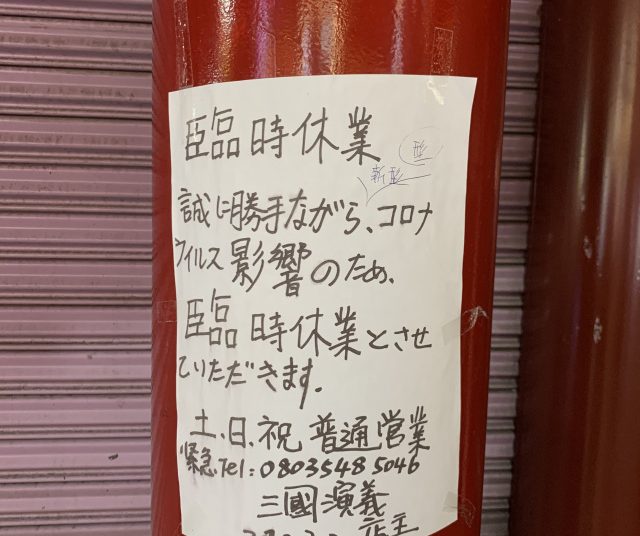 臨時休業
新型
型
誠に勝手ながら、コロナ
ウィルス影響のため、
臨時休業とさせ
ていただきます.
土.日.祝 普通営業
緊急.Tel:0803548 5046
三國演義
店主